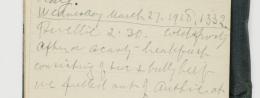 Wednesday March 27. 1918. 1332
Reveille 2.30. Cold & windy
After a scanty breakfast
consisting of tea & bully beef
we pulled out of Authie at